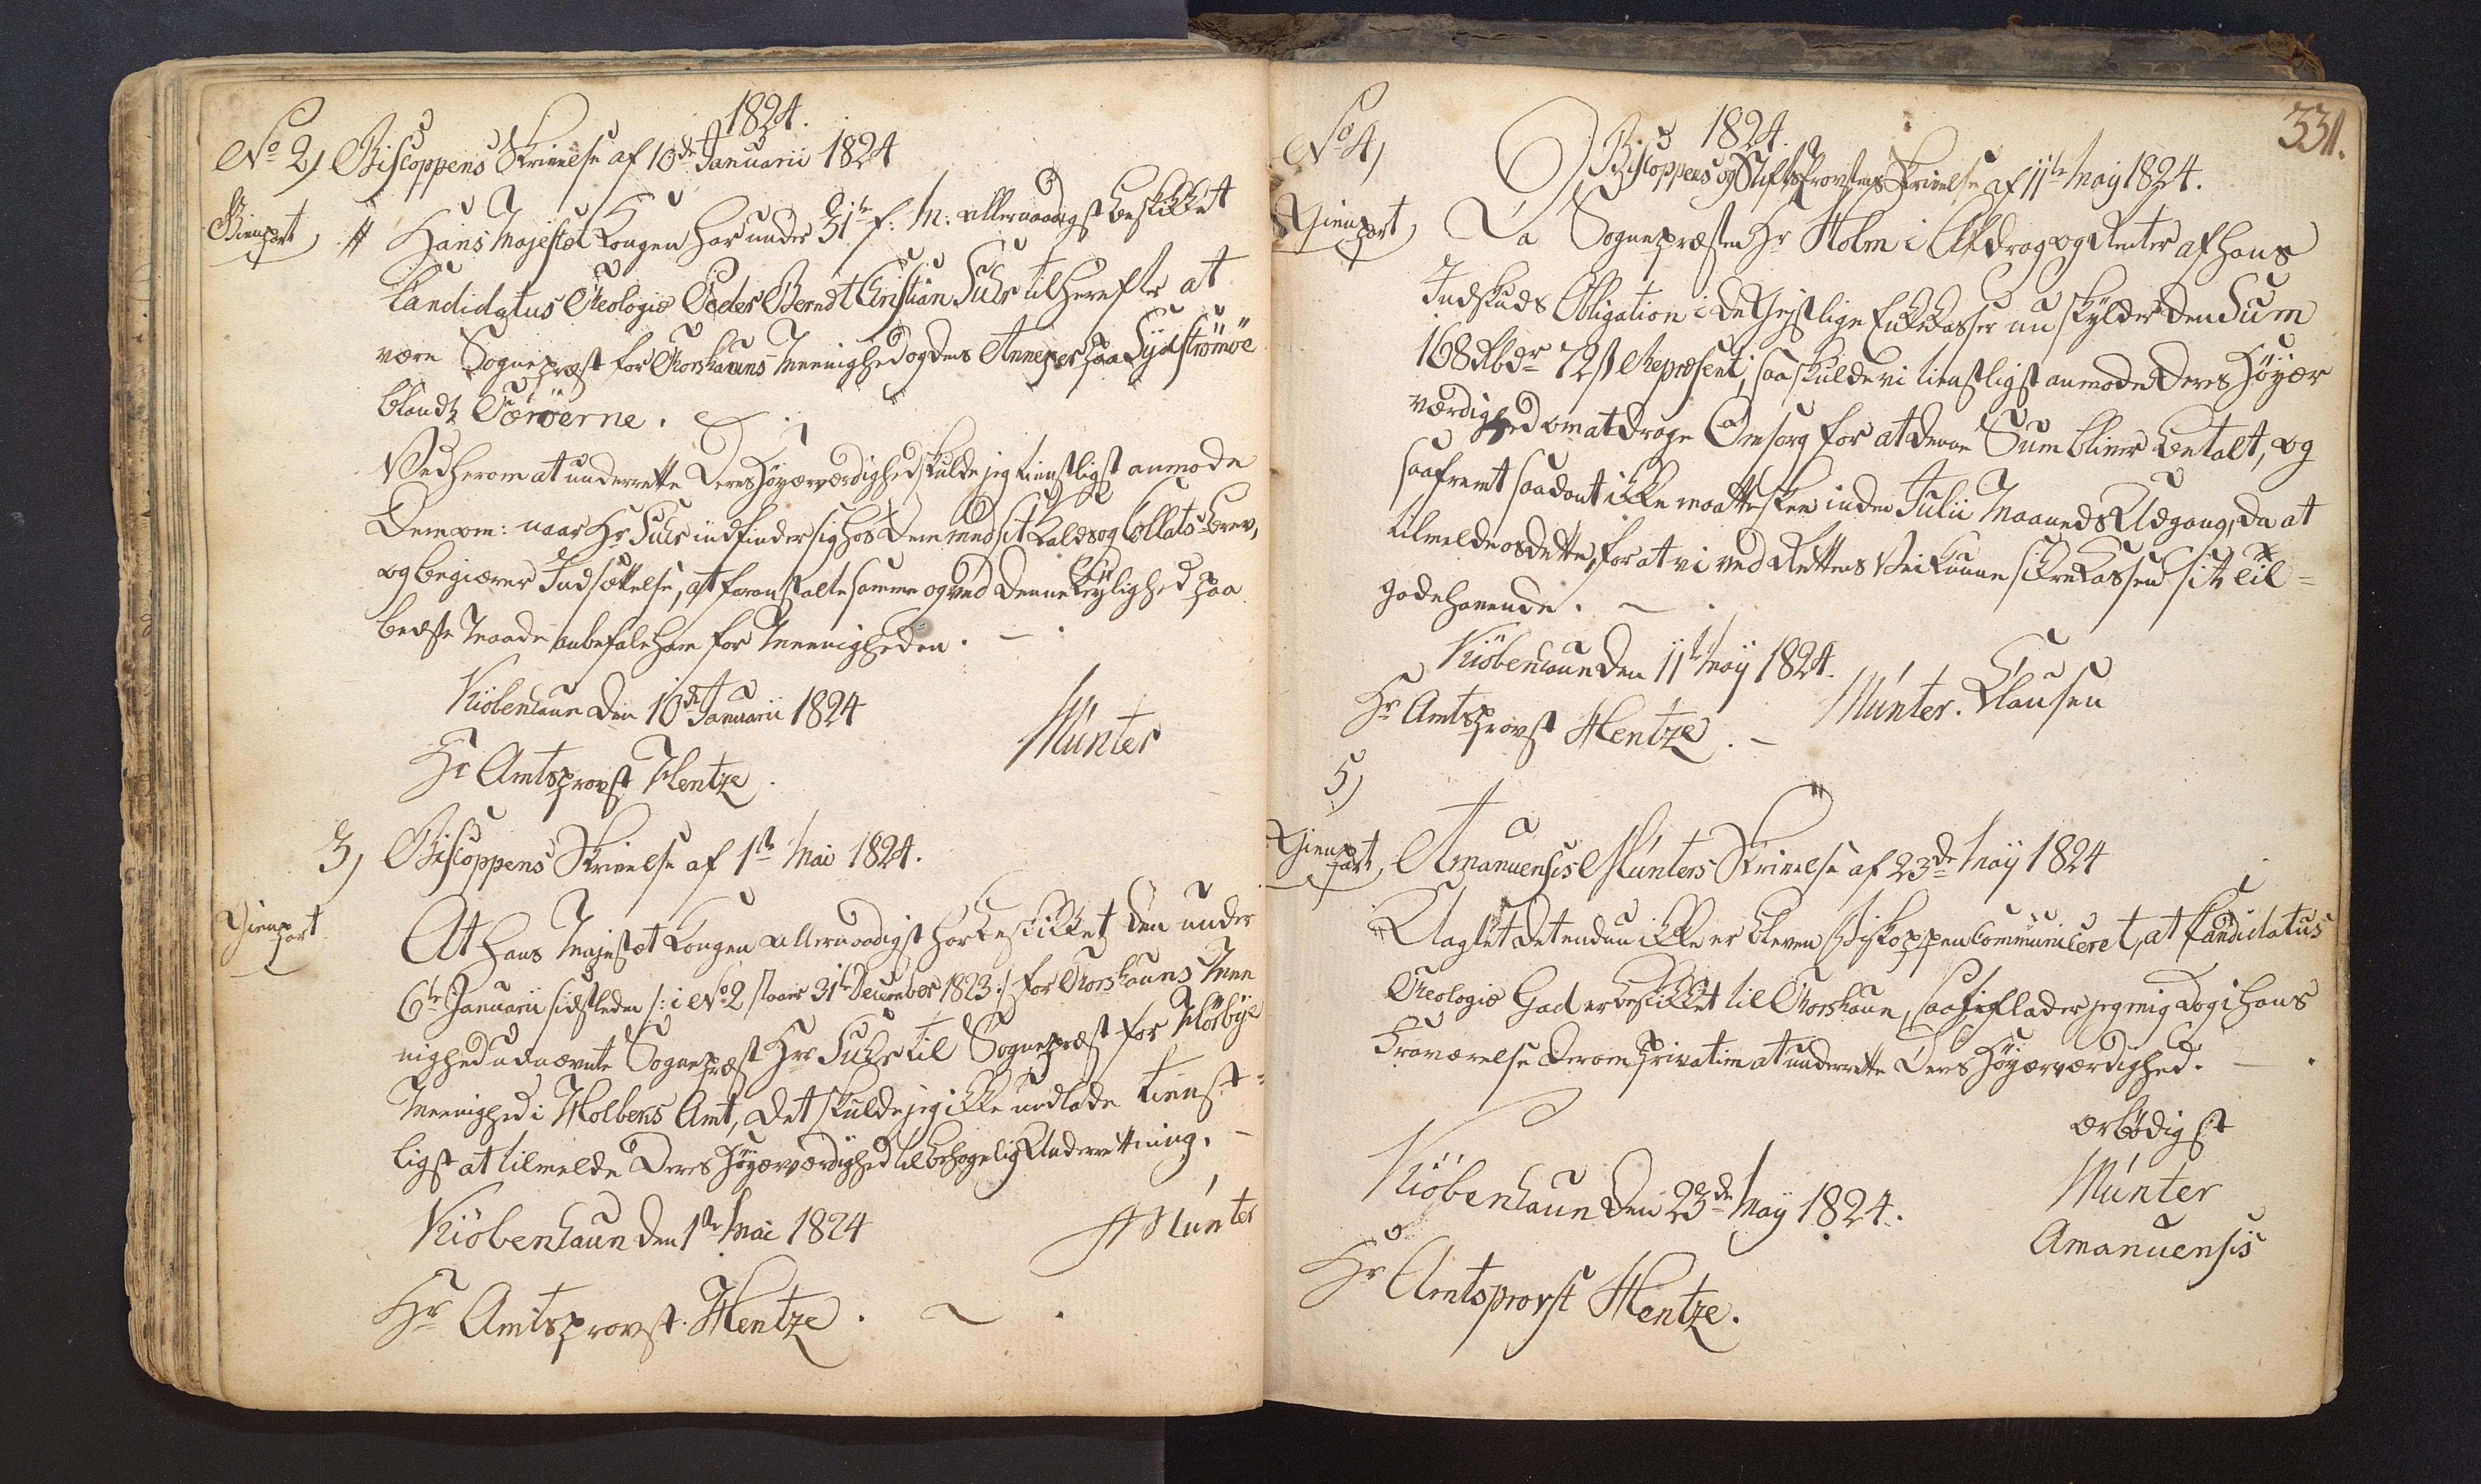 1824.
No 2) Biscoppens Skrivelse af 10de Januarii 1824
Gienpart # Hans Majestæt Kongen har under 31te f: M: allernaadigst beskikket
Candidatus Theologiæ Peder Berndt Christian Suhr til herefter at
være Sognepræst for Thorshauns Meenighed og dens Annexer paa Sydströmöe
blandt Færöerne.
Ved herom at underrette Deres Höyærværdighed skulde jeg tienstligst anmode
Dem om: naar Hr Suhr indfinder sig hos Dem med sit Kalds og Collats-brev,
og begiærer Indsættelse, at foranstalte samme og ved denne Leylighed paa
bedste Maade anbefale ham for Meenigheden.
Kiöbenhaun den 10de Januarii 1824
Münter
Hr Amtsprovst Hentze.
3) Biscoppens Skrivelse af 1ste Mai 1824.
Gienpart
At Hans Majestæt Kongen allernaadigst har beskikket den under
6te Januarii sidstleden /: i No 2 staaer 31te December 1823 :/ for Thorshauns Mee
nighed udnævnte Sognepræst Hr Suhr til Sognepræst for
Meenighed i Holbeks Amt, det skulde jeg ikke undlade tienst-
ligst at tilmelde Deres Höyærværdighed til behagelig Underretning.
Kiöbenhaun den 1ste Mai 1824
Münter
Hr Amtsprovst Hentze.
331.
1824.
No 4) Biscoppens og StiftsProvstens Skrivelse af 11te May 1824.
Gienpart Da Sognepræsten Hr Holm i Afdrag og Renter af hans
Indskuds Obligation i de Geistlige Enkekasser nu skylder den Sum
168 Rbdr 72 s Repræsent:, saa skulde vi tienstligst anmode Deres Höyær
værdighed om at drage Omsorg for at denne Sum bliver betalt, og
saafremt saadant ikke maatte skee inden Julii Maaneds Udgang, da at
tilmelde os dette, for at vi ved Rettens Vei kunne sikre Kassen sit til-
godehavende.
Kiöbenhaun den 11te May 1824.
Münter. Clausen
Hr Amtsprovst Hentze.
5)
Gienpart Amanuensis Münters Skrivelse af 23de May 1824
Uagtet det endnu ikke er bleven Biskoppen Communiceret, at Candidatus
Theologiæ Gad er beskikket til Thorshaun, saa tillader jeg mig dog i hans
Fraværelse derom privatim at underrette Deres Höyærværdighed.
ærbödigst
Kiöbenhaun den 23de May 1824.
Münter
Amanuensis
Hr Amtsprovst Hentze.